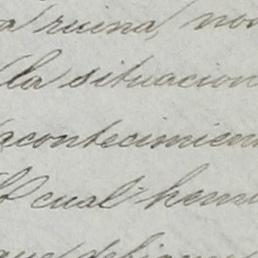 a ruina, no
la situacion
acontecimien
cual hem